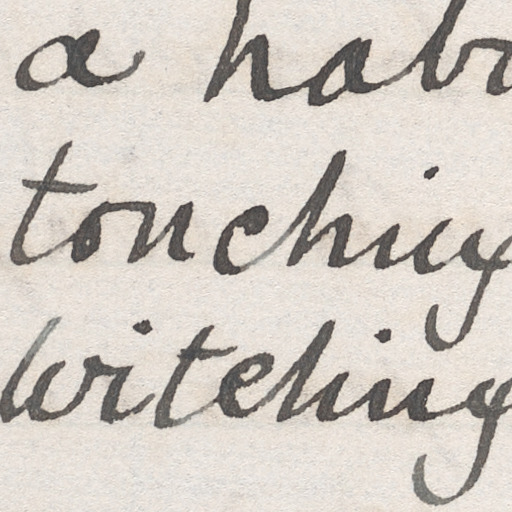 a hab
touching
witching